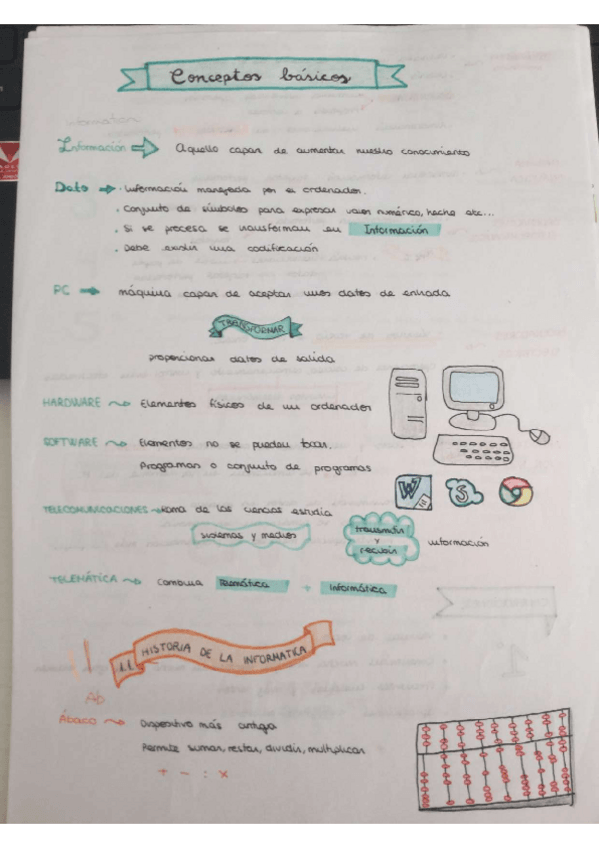 Conceptos básicos
Información → Aquello capaz de aumentar nuestro conocimiento
Dato → · Información manejada por el ordenador.
· Conjunto de símbolos para expresar valor numérico, hecho etc...
· Si se procesa se transforman en Información
· Debe existir una codificación
PC → máquina capaz de aceptar unos datos de entrada
TRANSFORMAR
proporcionar datos de salida
HARDWARE → Elementos físicos de un ordenador
SOFTWARE → Elementos no se pueden tocar.
Programas o conjunto de programas
W S
TELECOMUNICACIONES → Rama de las ciencias estudia
sistemas y medios transmitir y recibir información
TELEMÁTICA → Combina Telemática + Informática
1.1. HISTORIA DE LA INFORMATICA
Ab
Ábaco → Dispositivo más antiguo
Permite sumar, restar, dividir, multiplicar
+ - : x